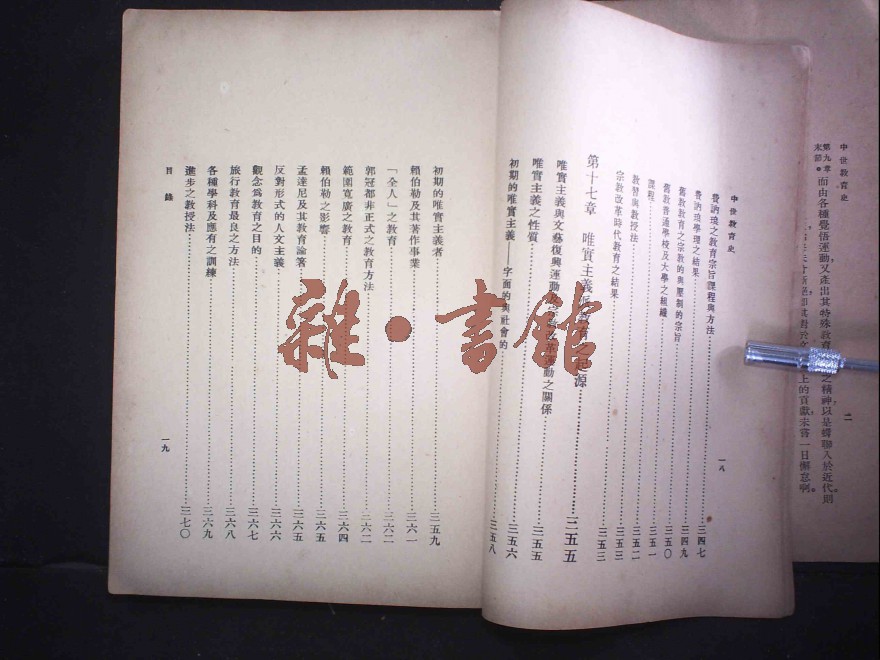 中世教育史
第九章
末節。
而由各種覺悟運動又產出其特殊教育
精神以是蟬聯入於近代則
上的貢獻未嘗一日懈怠啊。
二
中世教育史
費訥瑛之教育宗旨課程與方法……三四七
費訥瑛學理之結果……三四九
舊教教育之宗教的與壓制的宗旨……三五〇
舊教普通學校及大學之組織……三五一
課程……三五二
教習與教授法……三五三
宗教改革時代教育之結果……三五三
第十七章 唯實主義派教育之起源……三五五
唯實主義與文藝復興運動及宗教改革運動之關係
唯實主義之性質……三五五
初期的唯實主義——字面的與社會的……三五六
三五八
一八
初期的唯實主義者……三五九
賴伯勒及其著作事業……三六一
「全人」之教育……三六二
郭冠都非正式之教育方法……三六二
範圍寬廣之教育……三六四
賴伯勒之影響……三六五
孟達尼及其教育論著……三六五
反對形式的人文主義……三六六
觀念爲教育之目的……三六七
旅行教育最良之方法……三六八
各種學科及應有之訓練……三六九
進步之教授法……三七〇
目錄
一九
雜·書館